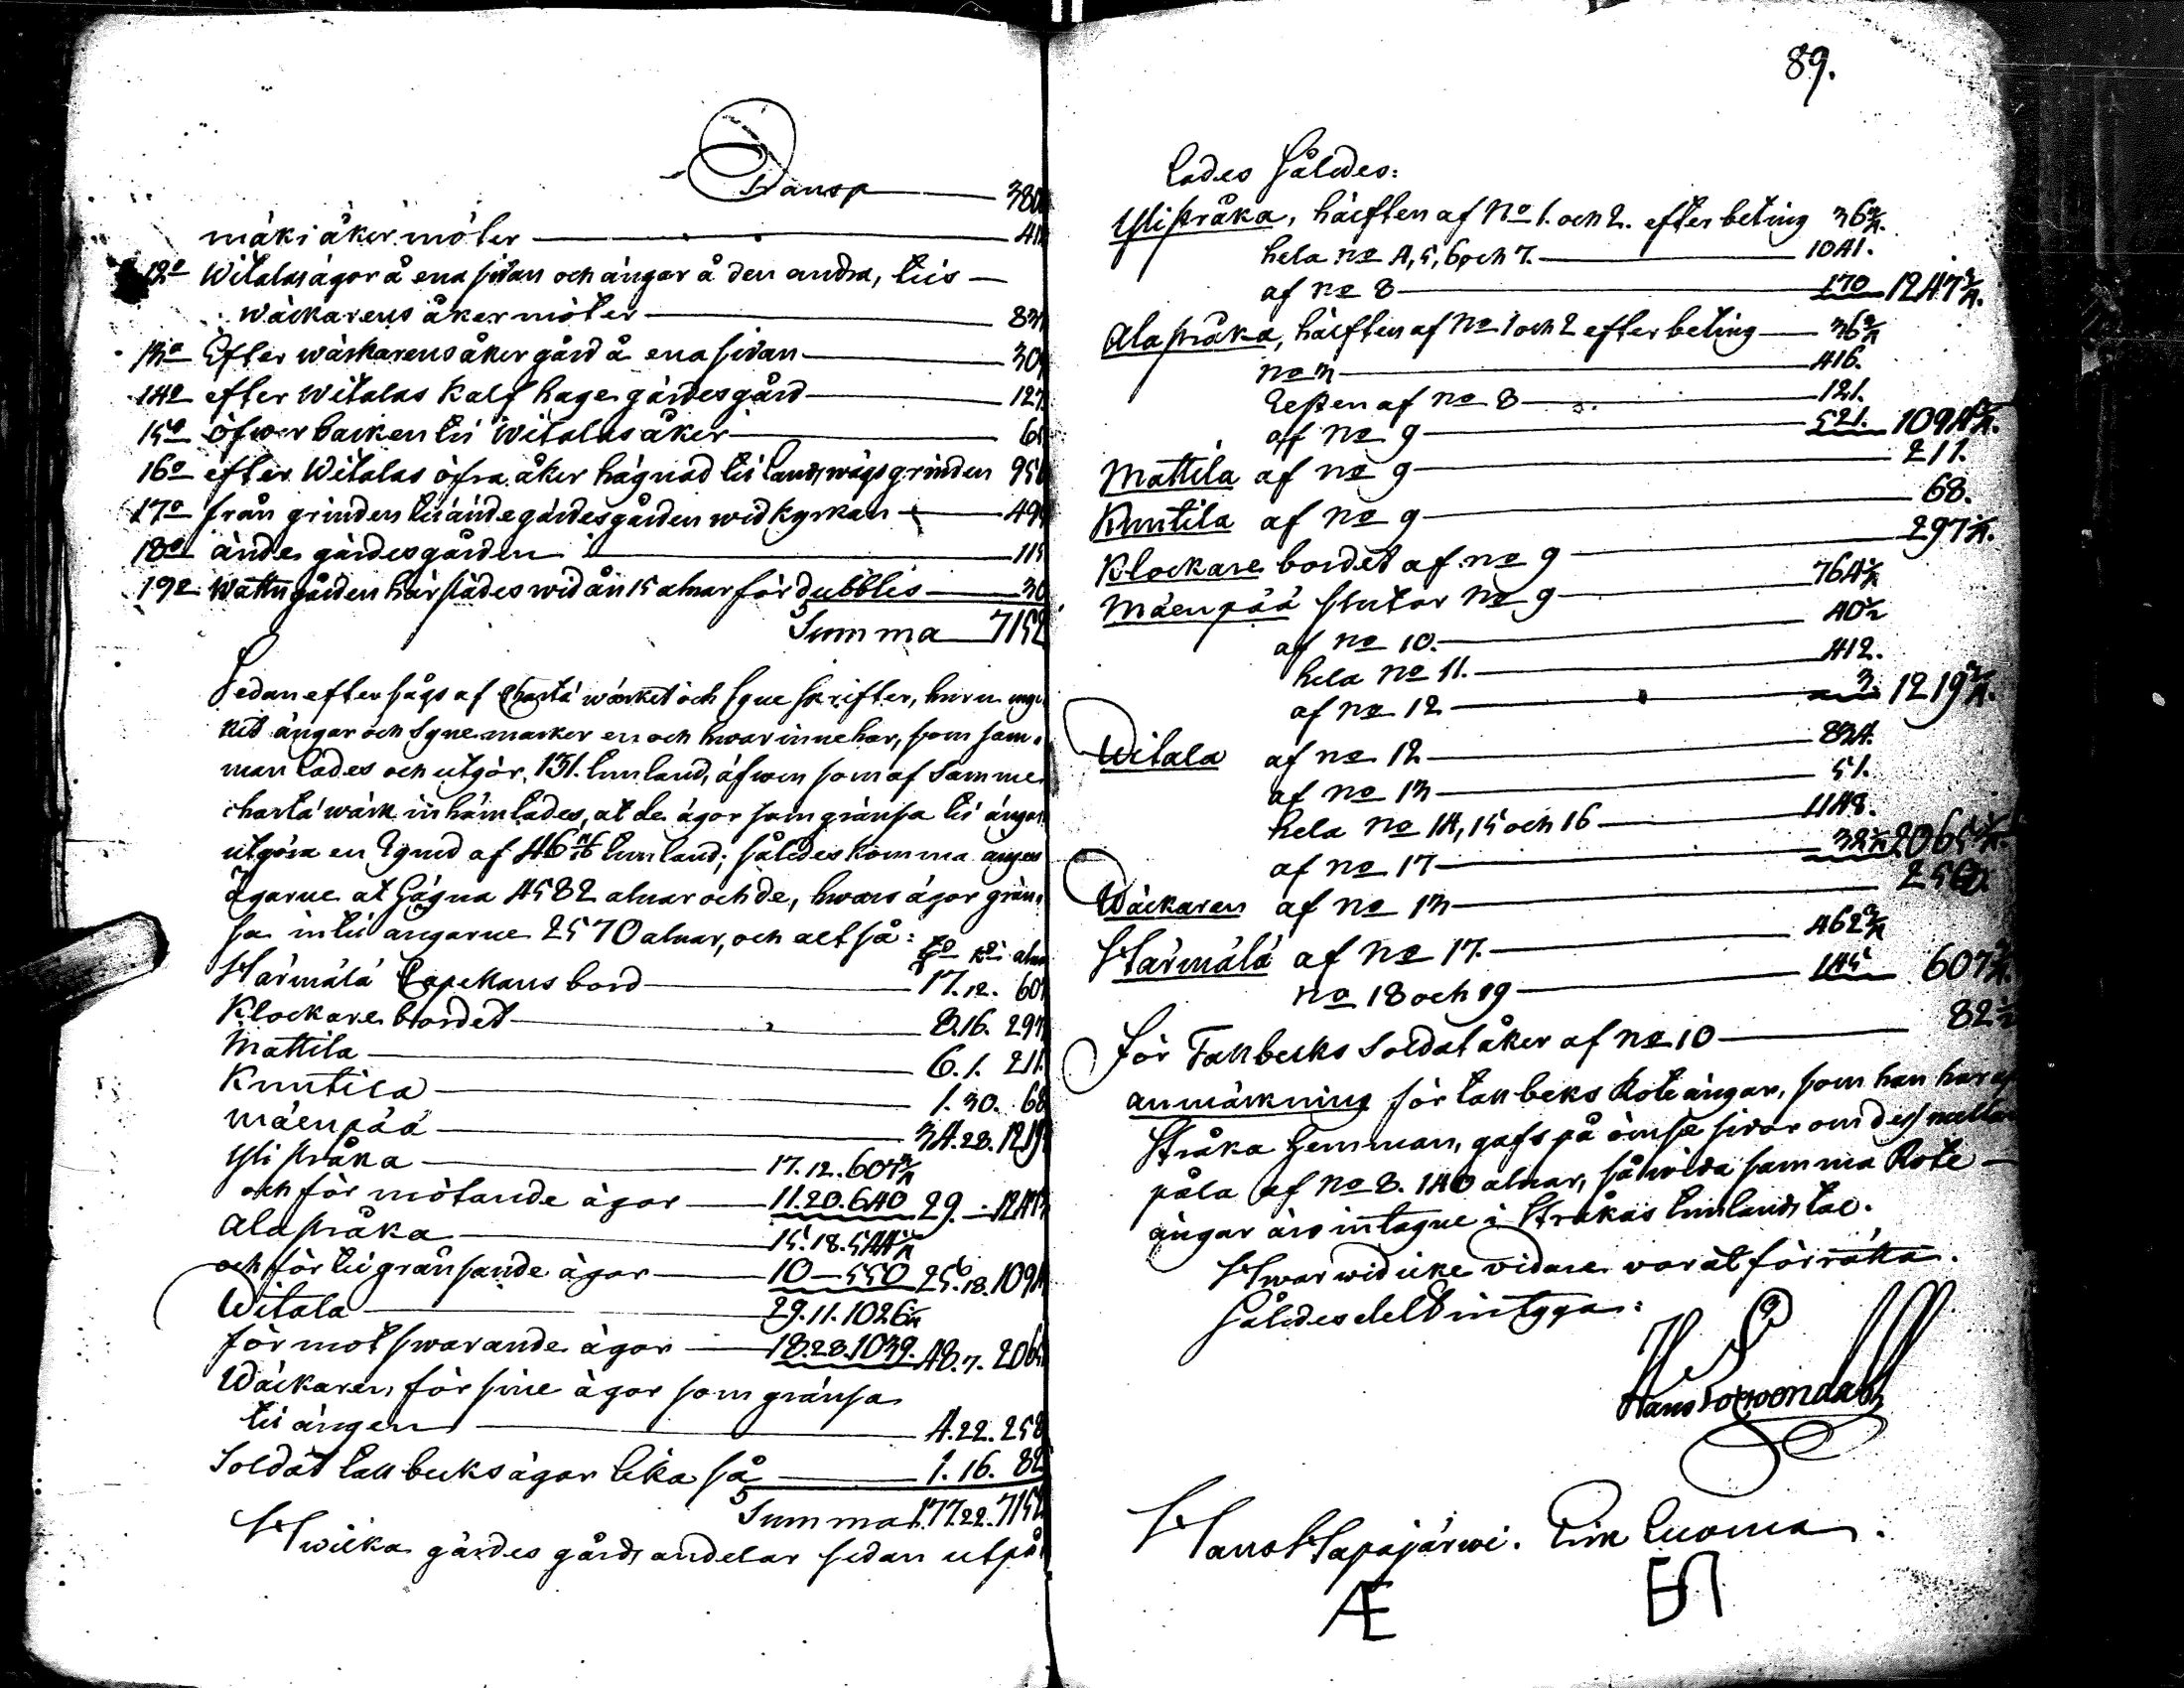 Transp 380
mäki åker möter 41
12o Witalas ägor å ena sidan och ängar å den andra, tils
Wäckarens åker möter 83
13o Efter wäckarens åker gård å ena sidan 30
14o efter Witalas Kalf hage gärdesgård 127
15o öfwer backen til Witalas åker 6
16o efter Witalas öfra åker hägnad til Landswägs grinden 95
17o från grinden til ände gärdesgården wid Kyrkan 49
18o ände gärdesgården 115
19o Wattugården härstädes wid ån 15 alnar för dubblis 30
Summa 7152
Sedan efter sågs af Charta wärket och Syne skrifter, huru my
ket ängar och Syne marker en och hwar innehar, som sam-
man lades och utgör 131. tunland, äfwen som af samme
charta wärk inhämtades, at de ägor som gränsa til ängar
utgöra en Egnd af 46 tunland; således komma anges
ägarne at hägna 4582 alnar och de, hwars ägor grän-
sa in til ängarne 2570 alnar, och alt så:
alna
Härmälä Capellans bord 17.12. 607
Klockare bordet 8.16. 297
Mattila 6.1. 211.
Knuutila 1.30. 68
mäenpää 34.28. 1219
Yli Kråka 17.12. 607 3/4
och för mötande ägor 11.20. 640 29. - 1247
Ala Kråka 15.18. 544 1/4
och för til gränsande ägor 10 - 550 25.18. 1094
Witala 29.11. 1026 1/4
för motswarande ägor 18.28. 1039. 48.7. 2065
Wäckaren, för sine ägor som gränsa
til ängen 4.22. 258
Soldat Tallbecks ägor lika så 1.16. 82
Summa 177.22. 7152
Hwilka gärdes gårds andelar sedan utpå-
89.
lades således:
Ylistråka, hälften af No 1. och 2. efter beting 36 3/4.
hela no 4, 5, 6 och 7. 1041.
af no 8 170 1247 3/4.
Alastråka, hälften af No 1 och 2 efter beting 36 3/4
no 3 416.
Resten af no 8 121.
af no 9 521. 1094 3/4.
Mattila af no 9 211.
Knuutila af no 9 68.
Klockare bordet af no 9 297 1/4.
Mäenpää slutar No 9 764 1/4
af no 10. 40 1/2
hela no 11. 412.
af no 12 3. 1219 3/4.
Witala af no 12 834.
af no 13 51.
hela no 14, 15 och 16 1148.
af no 17 32 1/4 2065 1/4.
Wäckaren af no 13 258
Härmälä af no 17. 462 3/4
no 18 och 19 145 607 3/4.
för Tallbecks Soldat åker af no 10 82 1/2
anmärkning för Tallbeks Rote ängar, som han har af
Stråka hemman, gafs på ömse sidor om des mellan
påla af No 8. 140 alnar, såwida samma Rote
ängar äro intagne i Stråkas tunlands tal.
Hwarwid icke widare war at förrätta.
således delt intygga:
Hans
Hans Hapajärwi. Erik Luoma.
Æ